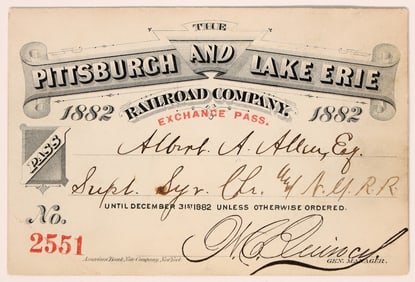 THE
PITTSBURGH AND LAKE ERIE
1882 RAILROAD COMPANY. 1882
EXCHANGE PASS.
PASS
Albert A. Allen, Esq.
Supt. Syr. Chn. & N. Y. R. R.
UNTIL DECEMBER 31ST 1882 UNLESS OTHERWISE ORDERED.
No. 2551
American Bank Note Company, New York.
GEN. MANAGER.